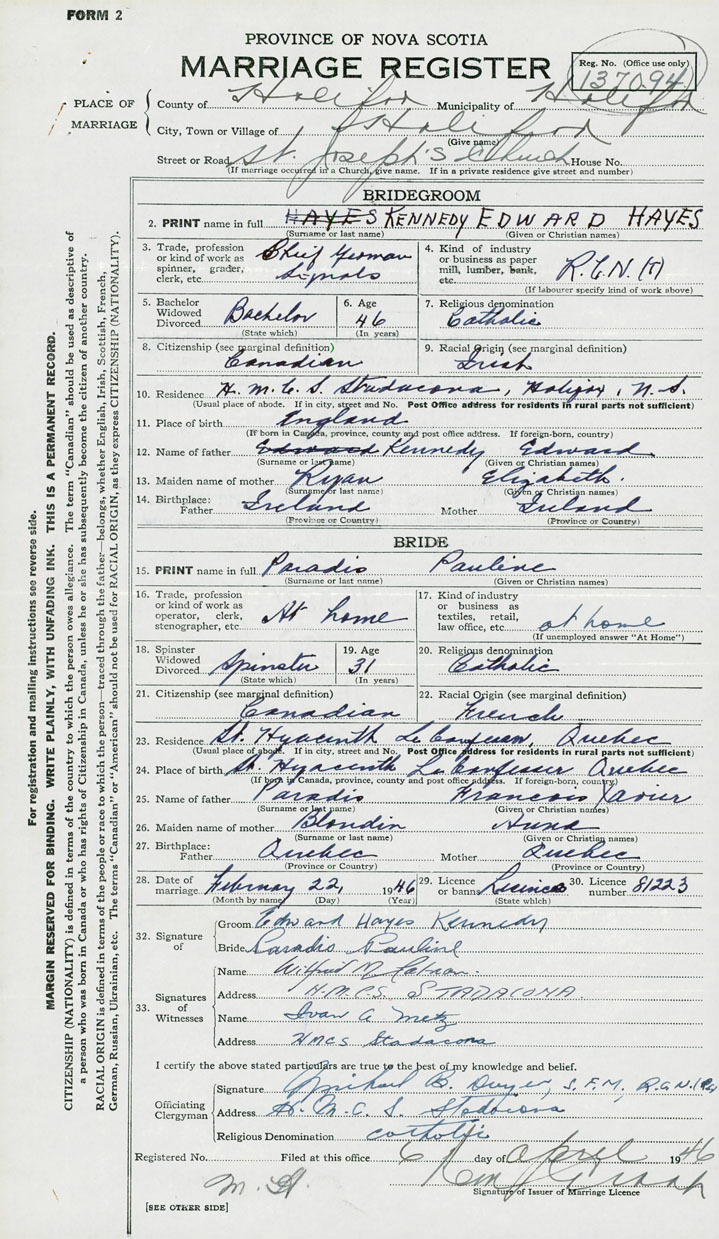 FORM 2
PROVINCE OF NOVA SCOTIA
MARRIAGE REGISTER
Reg. No. (Office use only)
137094
PLACE OF MARRIAGE
County of Halifax Municipality of Halifax
City, Town or Village of Halifax
(Give name)
Street or Road St. Joseph's Church House No.
(If marriage occurred in a Church, give name. If in a private residence give street and number)
BRIDEGROOM
2. PRINT name in full HAYES KENNEDY EDWARD HAYES
(Surname or last name) (Given or Christian names)
3. Trade, profession or kind of work as spinner, grader, clerk, etc. Chief Yeoman Signals
4. Kind of industry or business as paper mill, lumber, bank, etc. R.C.N. (T)
(If labourer specify kind of work above)
5. Bachelor Widowed Divorced Bachelor
(State which)
6. Age 46
(In years)
7. Religious denomination Catholic
8. Citizenship (see marginal definition) Canadian
9. Racial Origin (see marginal definition) Irish
10. Residence H.M.C.S. Stadacona Halifax, N.S.
(Usual place of abode. If in city, street and No. Post Office address for residents in rural parts not sufficient)
11. Place of birth England
(If born in Canada, province, county and post office address. If foreign-born, country)
12. Name of father Edward Kennedy Edward
(Surname or last name) (Given or Christian names)
13. Maiden name of mother Ryan Elizabeth.
(Surname or last name) (Given or Christian names)
14. Birthplace: Father Ireland Mother Ireland
(Province or Country) (Province or Country)
BRIDE
15. PRINT name in full Paradis Pauline
(Surname or last name) (Given or Christian names)
16. Trade, profession or kind of work as operator, clerk, stenographer, etc. At home
17. Kind of industry or business as textiles, retail, law office, etc. at home
(If unemployed answer "At Home")
18. Spinster Widowed Divorced Spinster
(State which)
19. Age 31
(In years)
20. Religious denomination Catholic
21. Citizenship (see marginal definition) Canadian
22. Racial Origin (see marginal definition) French
23. Residence St. Hyacinth Le Confesseur, Quebec
(Usual place of abode. If in city, street and No. Post Office address for residents in rural parts not sufficient)
24. Place of birth St. Hyacinth Le Confesseur Quebec
(If born in Canada, province, county and post office address. If foreign-born, country)
25. Name of father Paradis Francois Xavier
(Surname or last name) (Given or Christian names)
26. Maiden name of mother Blondin Anna
(Surname or last name) (Given or Christian names)
27. Birthplace: Father Quebec Mother Quebec
(Province or Country) (Province or Country)
28. Date of marriage February 22, 1946
(Month by name) (Day) (Year)
29. Licence or banns License
(State which)
30. Licence number 81223
32. Signature of
Groom Edward Hayes Kennedy
Bride Paradis Pauline
33. Signatures of Witnesses
Name Wilfred M.
Address H.M.C.S. STADACONA
Name Ivan A Metz
Address HMCS Stadacona
I certify the above stated particulars are true to the best of my knowledge and belief.
Officiating Clergyman
Signature Michael B. Dwyer, S.F.M., R.C.N.
Address H.M.C.S Stadacona
Religious Denomination Catholic
Registered No. Filed at this office 6 day of April 1946
Signature of Issuer of Marriage Licence
[SEE OTHER SIDE]
For registration and mailing instructions see reverse side.
MARGIN RESERVED FOR BINDING. WRITE PLAINLY, WITH UNFADING INK. THIS IS A PERMANENT RECORD.
CITIZENSHIP (NATIONALITY) is defined in terms of the country to which the person owes allegiance. The term "Canadian" should be used as descriptive of
a person who was born in Canada or who has rights of Citizenship in Canada, unless he or she has subsequently become the citizen of another country.
RACIAL ORIGIN is defined in terms of the people or race to which the person—traced through the father—belongs, whether English, Irish, Scottish, French,
German, Russian, Ukrainian, etc. The terms "Canadian" or "American" should not be used for RACIAL ORIGIN, as they express CITIZENSHIP (NATIONALITY).